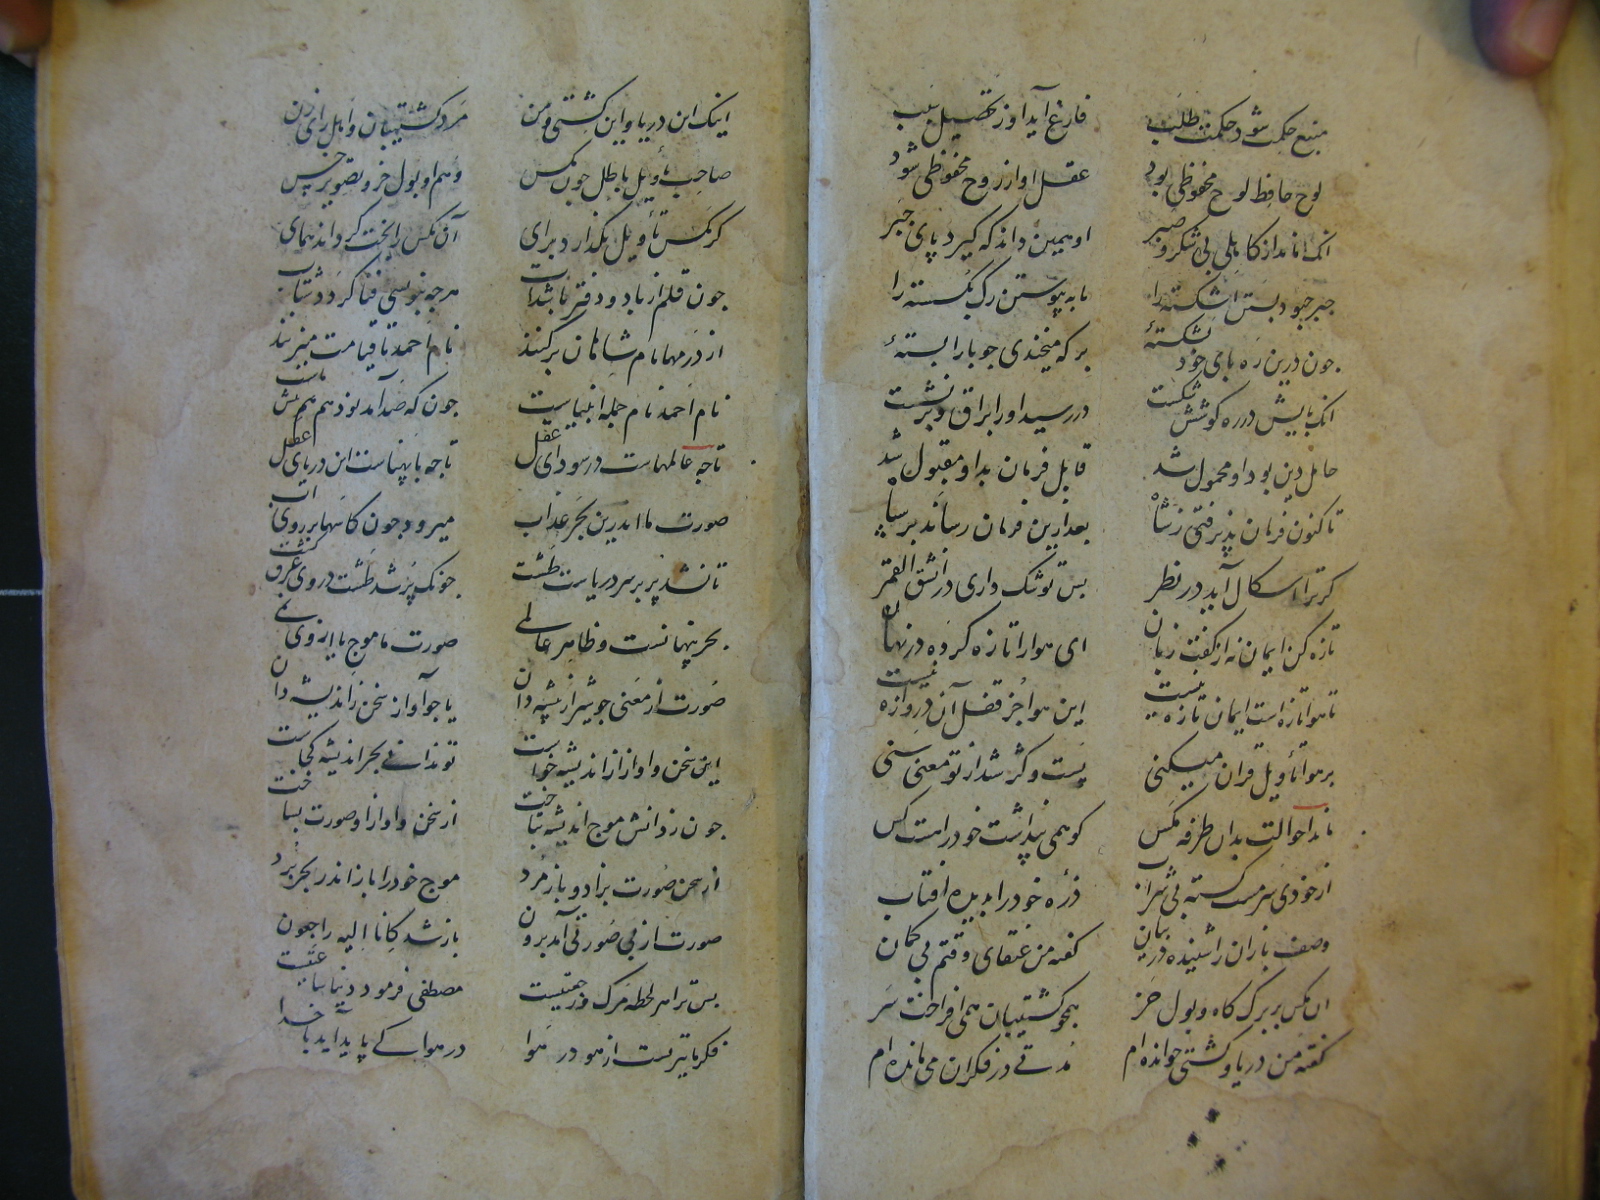 منبع حکمت شود حکمت طلب
فارغ آید او ز تحصیل سبب
لوح حافظ لوح محفوظی بود
عقل او از روح محفوظی شود
انک او ماند از کاهلی بی شکر و صبر
او همین داند که گیرد پای جبر
جبر چبود بستن اشکسته را
یا به پیوستن رک بکسسته را
جون درین ره پای خود نشکستهٔ
بر که میخندی جو پا را بستهٔ
انک پایش در ره کوشش شکست
در رسید او را براق و بر نشست
حامل دین بود او محمول شد
قابل فرمان بد او مقبول شد
تاکنون فرمان پذیرفتی ز شاه
بعد ازین فرمان رساند بر سپاه
کر ترا اشکال آید در نظر
بس تو شک داری در انشق القمر
تازه کن ایمان نه از کفت زبان
ای هوا را تازه کرده در نهان
تا هوا تازه است ایمان تازه نیست
این هوا جز قفل آن دروازه نیست
بر هوا تأویل قران میکنی
پست و کژ شد از تو معنی سنی
ماند احوالت بدان طرفه مکس
کو همی پنداشت خود را هست کس
از خودی سرمست کشته بی شراب
ذرهٔ خود را بدیده افتاب
وصف بازان را شنیده در بیان
کفته من عنقای وقتم بی کمان
ان مکس بر برک کاه و بول خر
همجو کشتیبان همی افراخت سر
کفته من دریا و کشتی خوانده ام
مدتی در فکر ان می مانده ام
اینک این دریا و این کشتی و من
مرد کشتیبان و اهل رای زن
صاحب تأویل باطل جون مکس
وهم او بول خر و تصویر خس
کر مکس تأویل بکذارد برای
آن مکس را بخت کرداند همای
جون قلم از باد و دفتر باشد اب
هرجه بنویسی فنا کردد شتاب
از درمها نام شاهان برکنند
نام احمد تا قیامت میزنند
نام احمد نام جمله انبیاست
جون که صد آمد نود هم هم پیش ماست
تا جه عالمهاست در سودای عقل
تا جه با پهناست این دریای عقل
صورت ما اندرین بحر عذاب
میرود جون کاسها بر روی اب
تا نشد پر بر سر دریاست طشت
جونک پر شد طشت در وی غرق کشت
بحر پنهانست و ظاهر عالمی
صورت ما موج یا از وی نمی
صورت از معنی جو شیر از بیشه دان
یا جو آواز سخن ز اندیشه دان
این سخن و اواز از اندیشه خواست
تو ندانی بحر اندیشه کجاست
جون ز دانش موج اندیشه بتاخت
از سخن و اواز او صورت بساخت
از سخن صورت بزاد و باز مرد
موج خود را باز اندر بحر برد
صورت از بی صورتی آمد برون
باز شد کانا الیه راجعون
بس ترا هر لحظه مرک و رجعتیست
مصطفی فرمود دنیا ساعتیست
فکر ما تیریست از هو در هوا
در هوا کی پاید آید تا خدا